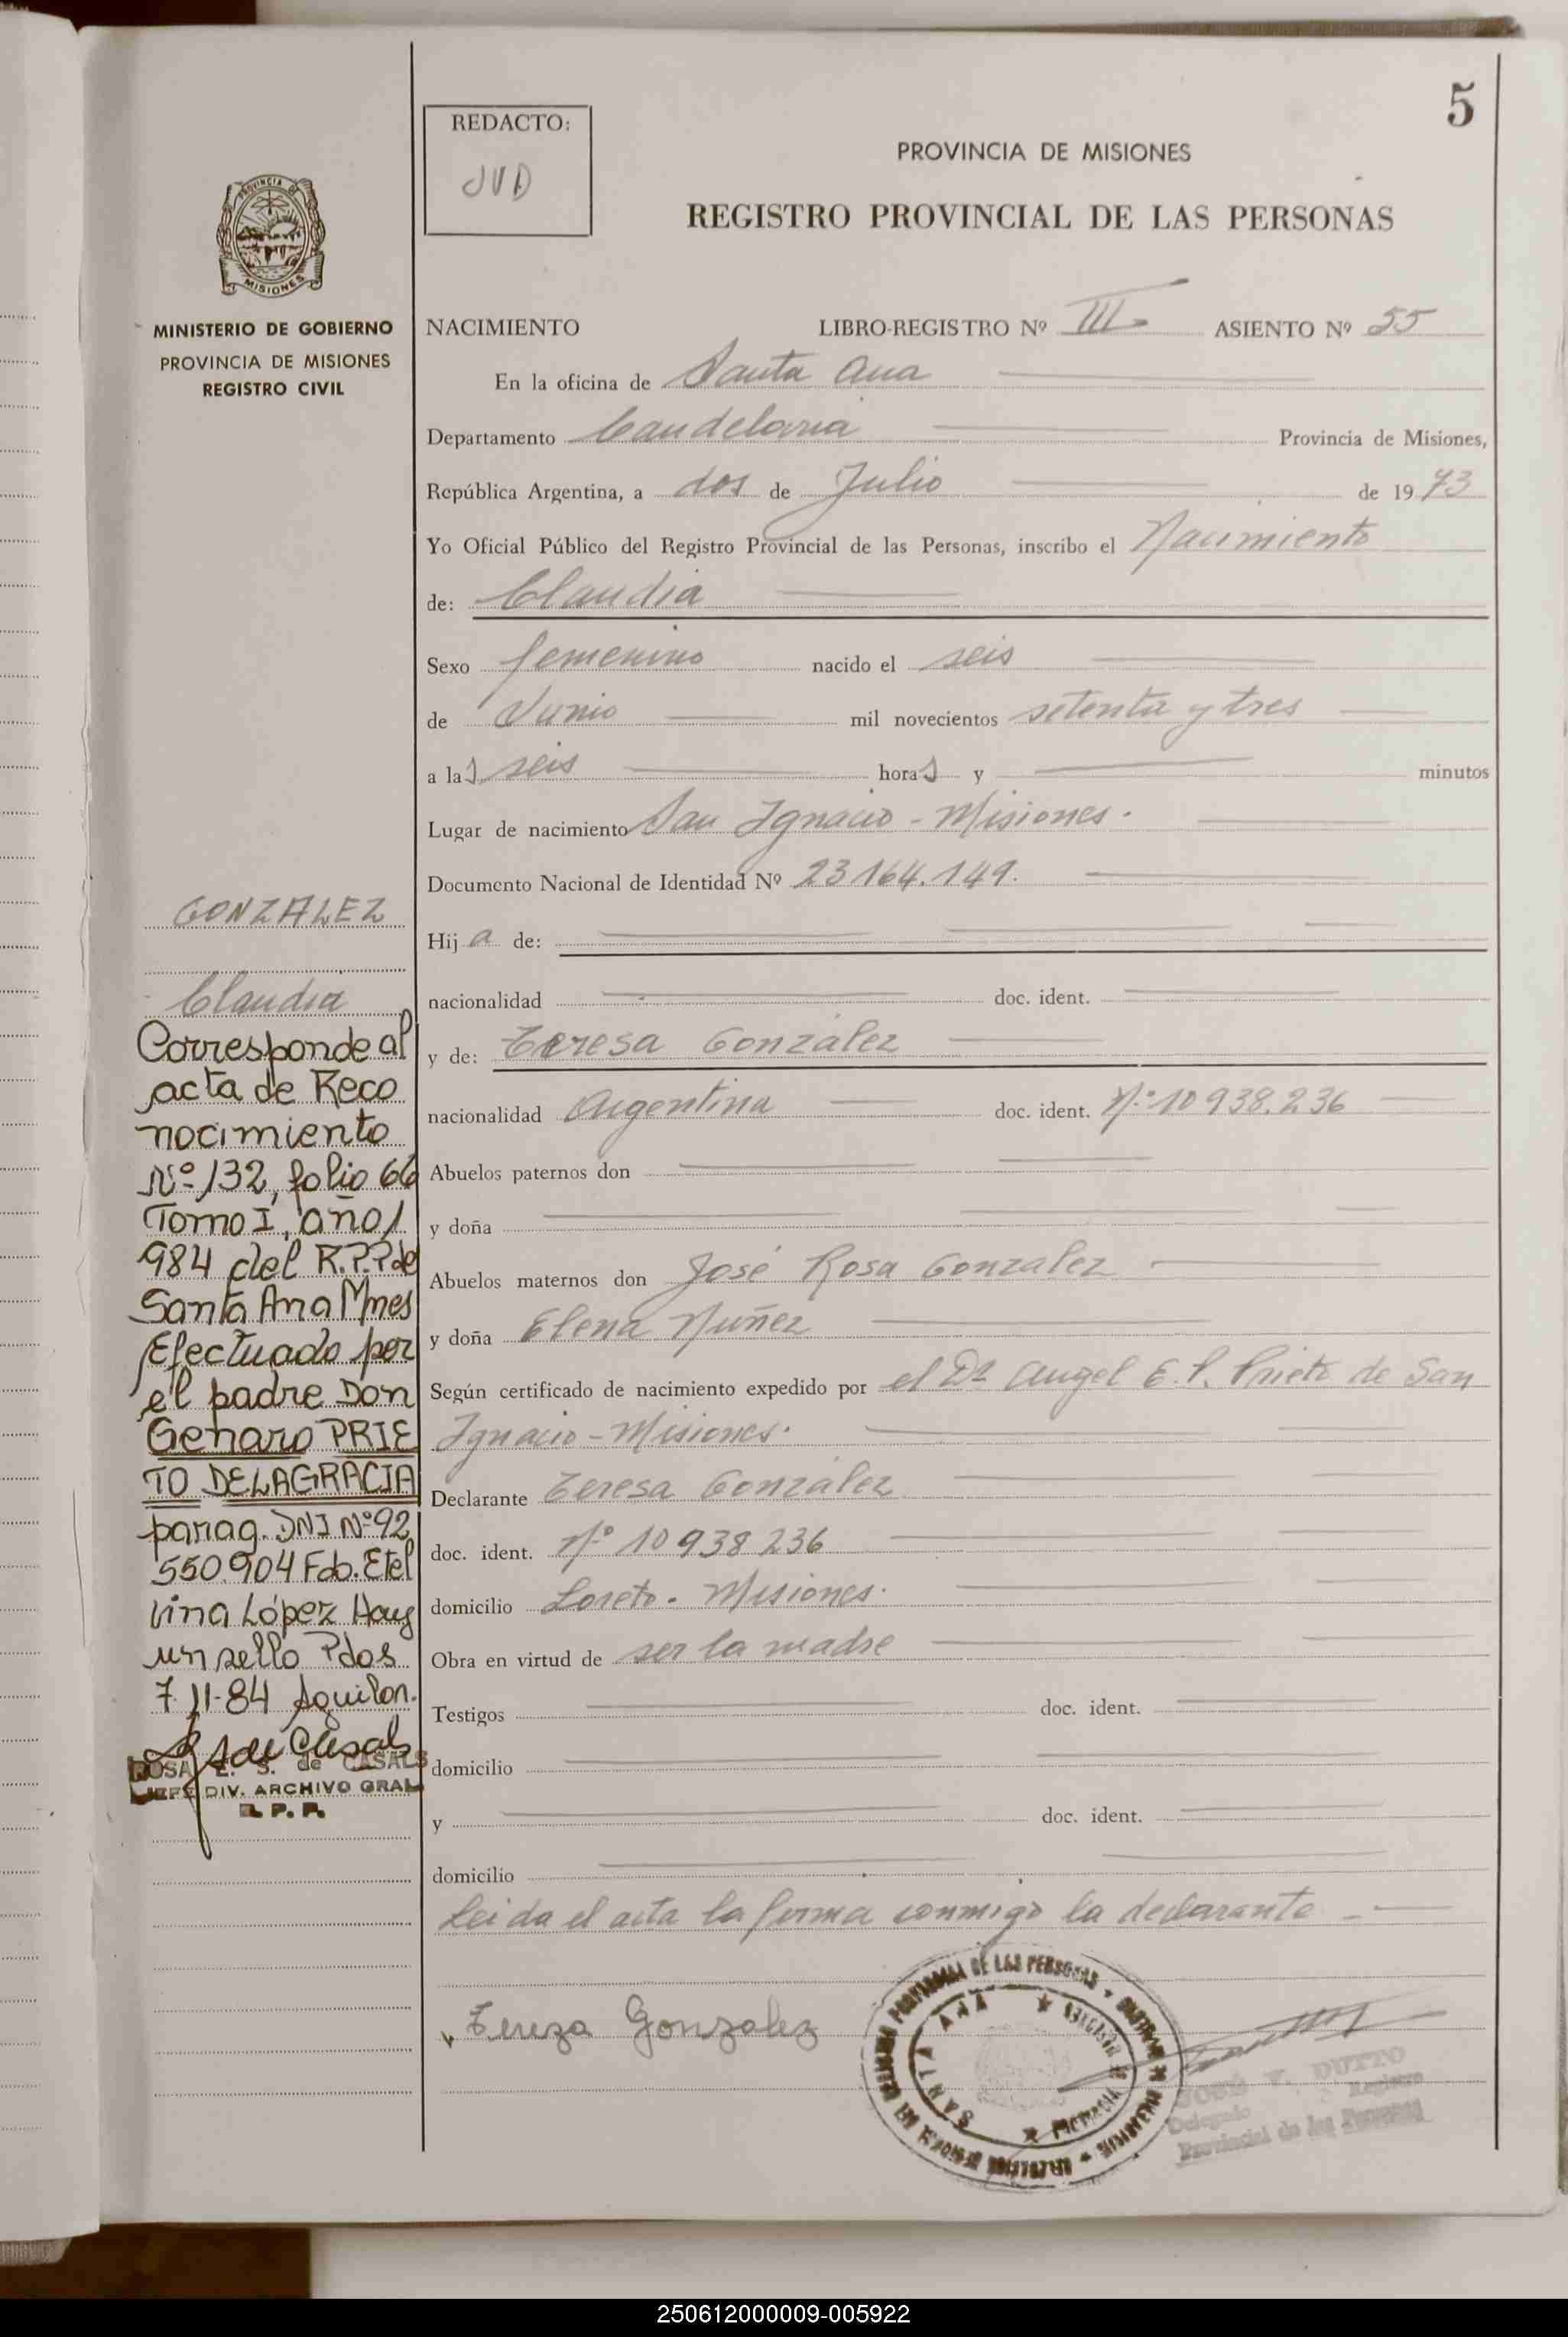 5
REDACTO:
JVD
PROVINCIA DE MISIONES
REGISTRO PROVINCIAL DE LAS PERSONAS
PROVINCIA DE
MISIONES
MINISTERIO DE GOBIERNO
PROVINCIA DE MISIONES
REGISTRO CIVIL
NACIMIENTO LIBRO-REGISTRO Nº III ASIENTO Nº 55
En la oficina de Santa Ana
Departamento Candelaria Provincia de Misiones,
República Argentina, a dos de Julio de 1973
Yo Oficial Público del Registro Provincial de las Personas, inscribo el Nacimiento
de: Claudia
Sexo femenino nacido el seis
de Junio mil novecientos setenta y tres
a las seis horas y minutos
Lugar de nacimiento San Ignacio - Misiones.
Documento Nacional de Identidad Nº 23164.149.
Hija de:
nacionalidad doc. ident.
y de: Teresa González
nacionalidad Argentina doc. ident. Nº 10938.236
Abuelos paternos don
y doña
Abuelos maternos don José Rosa Gonzalez
y doña Elena Nuñez
Según certificado de nacimiento expedido por el Dr Angel E. P. Prieto de San
Ignacio - Misiones.
Declarante Teresa González
doc. ident. Nº 10938236
domicilio Loreto - Misiones.
Obra en virtud de ser la madre
Testigos doc. ident.
domicilio
y doc. ident.
domicilio
Leida el acta la firma conmigo la declarante
Tereza Gonzalez
SANTA ANA
JOSÉ V. DUTTO
Delegado Registro
Provincial de las Personas
GONZALEZ
Claudia
Corresponde al
acta de Reco
nocimiento
Nº 132, folio 66
Tomo I, año 1
984 del R.P.P de
Santa Ana Mnes
Efectuado por
el padre Don
Genaro PRIE
TO DELAGRACIA
parag. DNI Nº 92
550.904 Fdo. Etel
vina López Hay
un sello Pdos
7-11-84 Aguilon.
ROSA E. S. de CASALS
JEFE DIV. ARCHIVO GRAL
R. P. P.
250612000009-005922